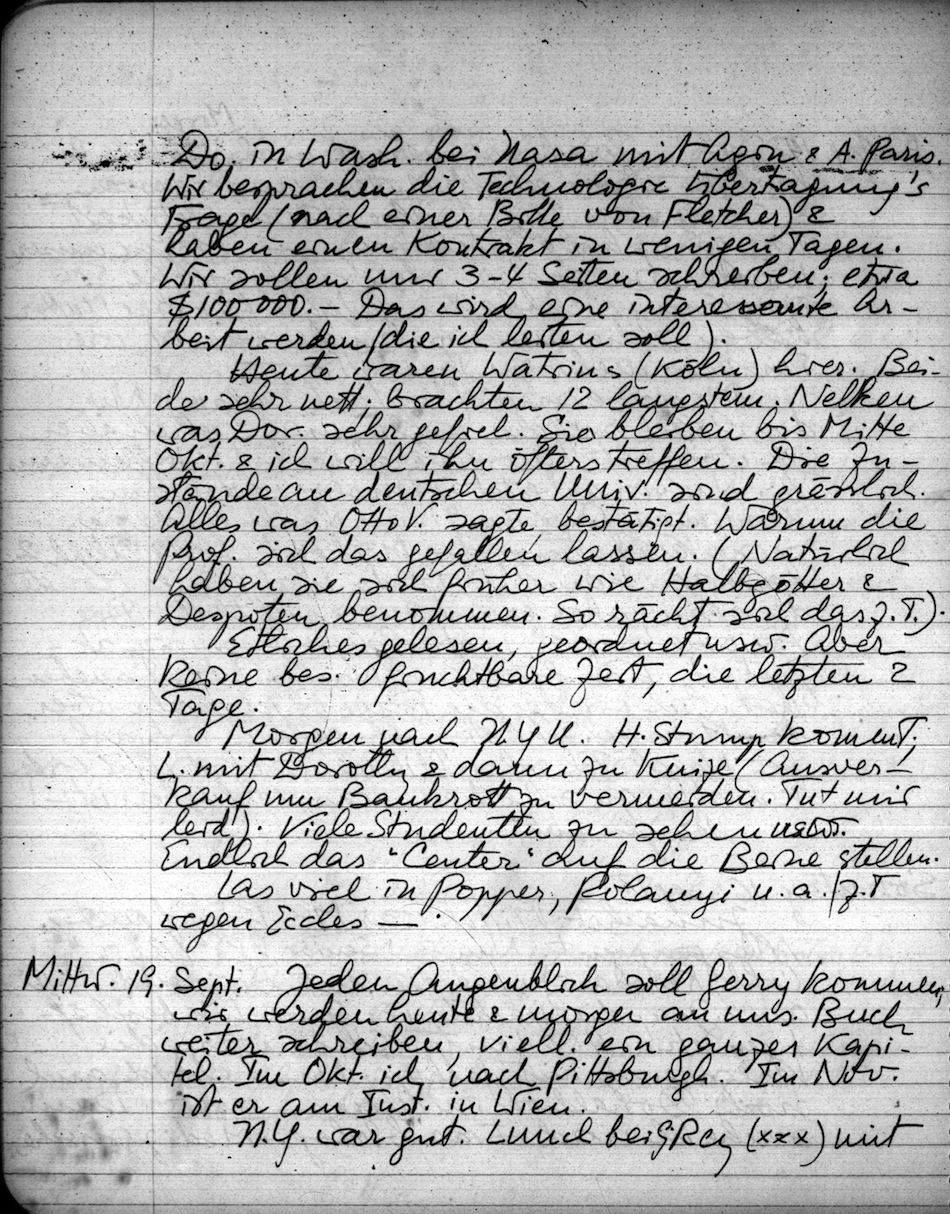 Do. in Wash. bei Nasa mit Agon & A. Paris.
Wir besprachen die Technologie Übertagung's
Frage (nach einer Bitte von Fletcher) &
haben einen Kontrakt in wenigen Tagen.
Wir sollen nur 3-4 Seiten schreiben; etwa
$100 000.- Das wird eine interessante Ar-
beit werden (die ich leiten soll).
Heute waren Watrins (Köln) hier. Bei-
de sehr nett; brachten 12 langstem. Nelken
was Dor. sehr gefiel. Sie bleiben bis Mitte
Okt. & ich will ihn öfters treffen. Die Zu-
stände an deutschen Univ. sind grässlich.
Alles was Otto V. sagte, bestätigt. Warum die
Prof. sich das gefallen lassen. (Natürlich
haben sie sich früher wie Halbgötter &
Despoten benommen. So rächt sich das z.T.)
Etliches gelesen, geordnet usw. Aber
keine bes. fruchtbare Zeit, die letzten 2
Tage.
Morgen nach N.Y.U. H. Stump kommt;
L. mit Dorothy & dann zu Knize (Ausver-
kauf um Bankrott zu vermeiden. Tut mir
leid). Viele Studenten zu sehen usw.
Endlich das "Center" auf die Beine stellen.
Las viel in Popper, Polanyi u.a. z.T
wegen Eccles —
Mittw. 19. Sept. Jeden Augenblick soll Gerry kommen,
wir werden heute & morgen an uns. Buch
weiter schreiben, viell. ein ganzes Kapi-
tel. Im Okt. ich nach Pittsburgh. Im Nov.
ist er am Inst. in Wien.
N.Y. war gut. Lunch bei (xxx) mit